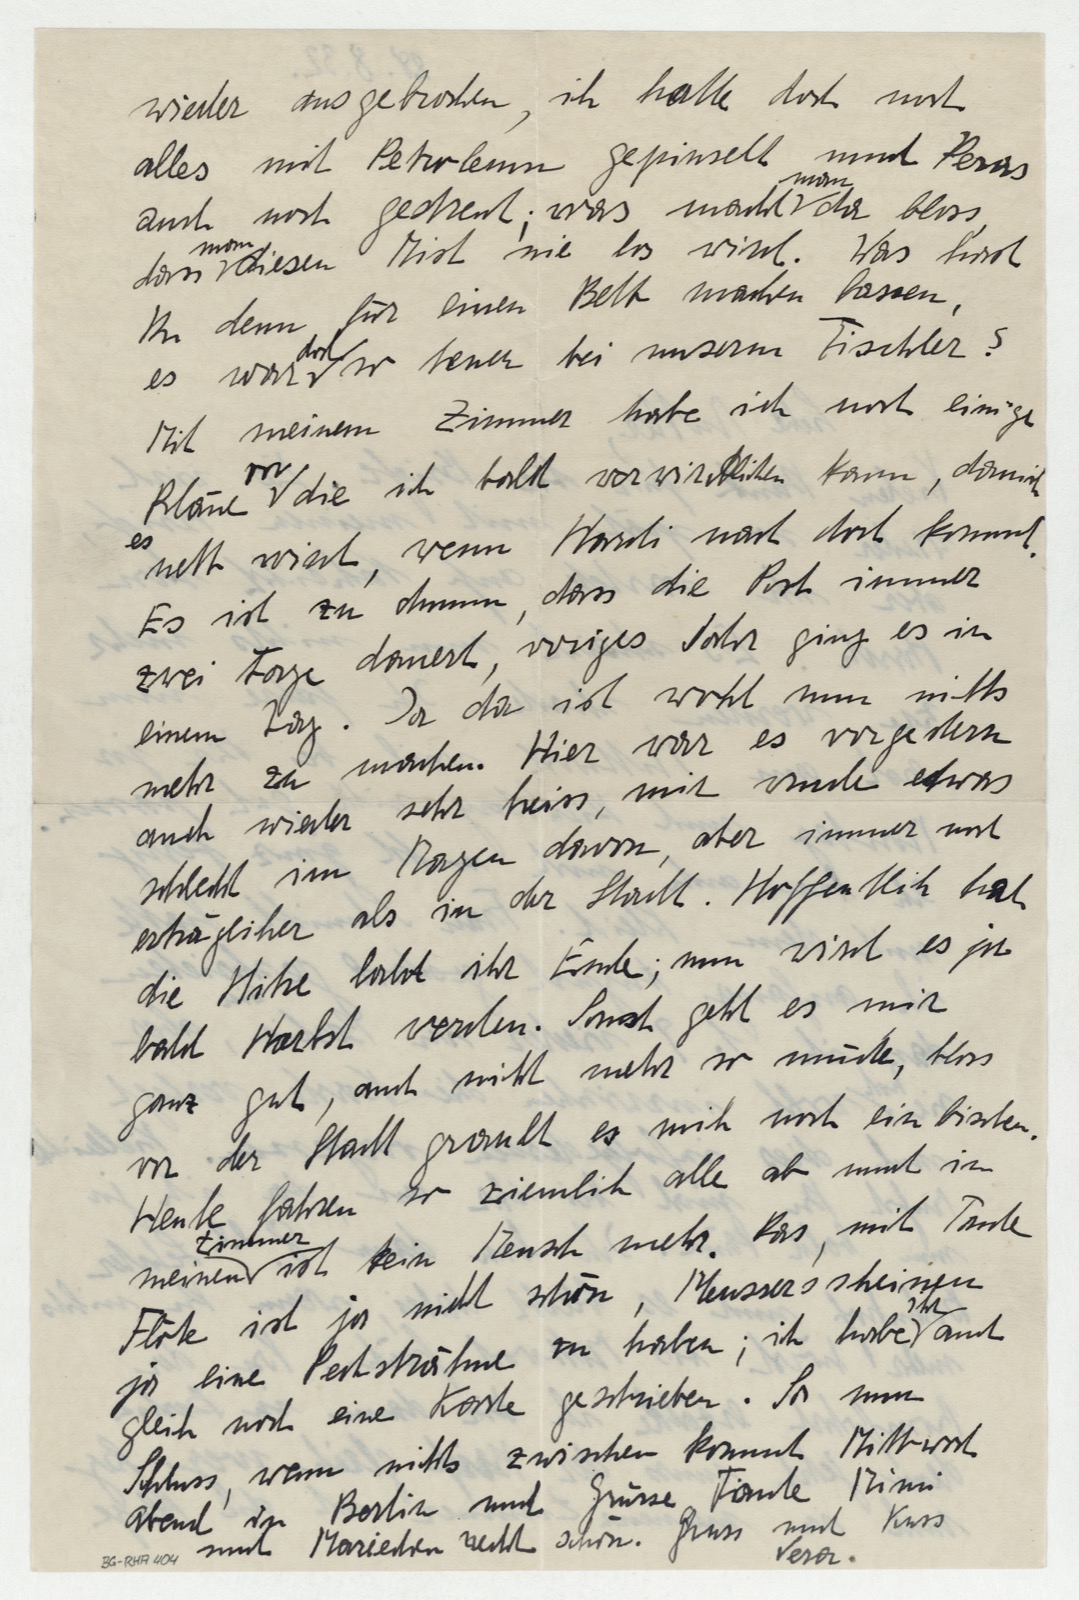 wieder ausgebrochen, ich hatte doch noch
alles mit Petroleum gepinselt und Peras
auch noch gestreut; was macht man da bloss,
dass man diesen Mist nie los wird. Was hast
Du denn für einen Belt machen lassen,
es war doch so teuer bei unserm Tischler?
Mit meinem Zimmer habe ich noch einige
Pläne vor die ich bald verwirklichen kann, damit
es nett wird, wenn Hardi nach dort kommt.
Es ist zu dumm, dass die Post immer
zwei Tage dauert, voriges Jahr ging es in
einem Tag. Ja da ist wohl nun nichts
mehr zu machen. Hier war es vorgestern
auch wieder sehr heiss, mir wurde etwas
schlecht im Magen davon, aber immer noch
erträglicher als in der Stadt. Hoffentlich hat
die Hitze bald ihr Ende; nun wird es ja
bald Herbst werden. Sonst geht es mir
ganz gut, auch nicht mehr so müde, bloss
vor der Stadt grault es mich noch ein bischen.
Heute fahren so ziemlich alle ab und in
meinen Zimmer ist kein Mensch mehr. Das, mit Tante
Flöte ist ja nicht schön, Meussers scheinen
ja eine Pechsträhne zu haben; ich habe ihr auch
gleich noch eine Karte geschrieben. So nun
Schluss, wenn nichts zwischen kommt Mittwoch
abend in Berlin und Grüsse Tante Mimi
und Mariechen recht schön. Gruss und Kuss
Vera.
BG-RHA 404